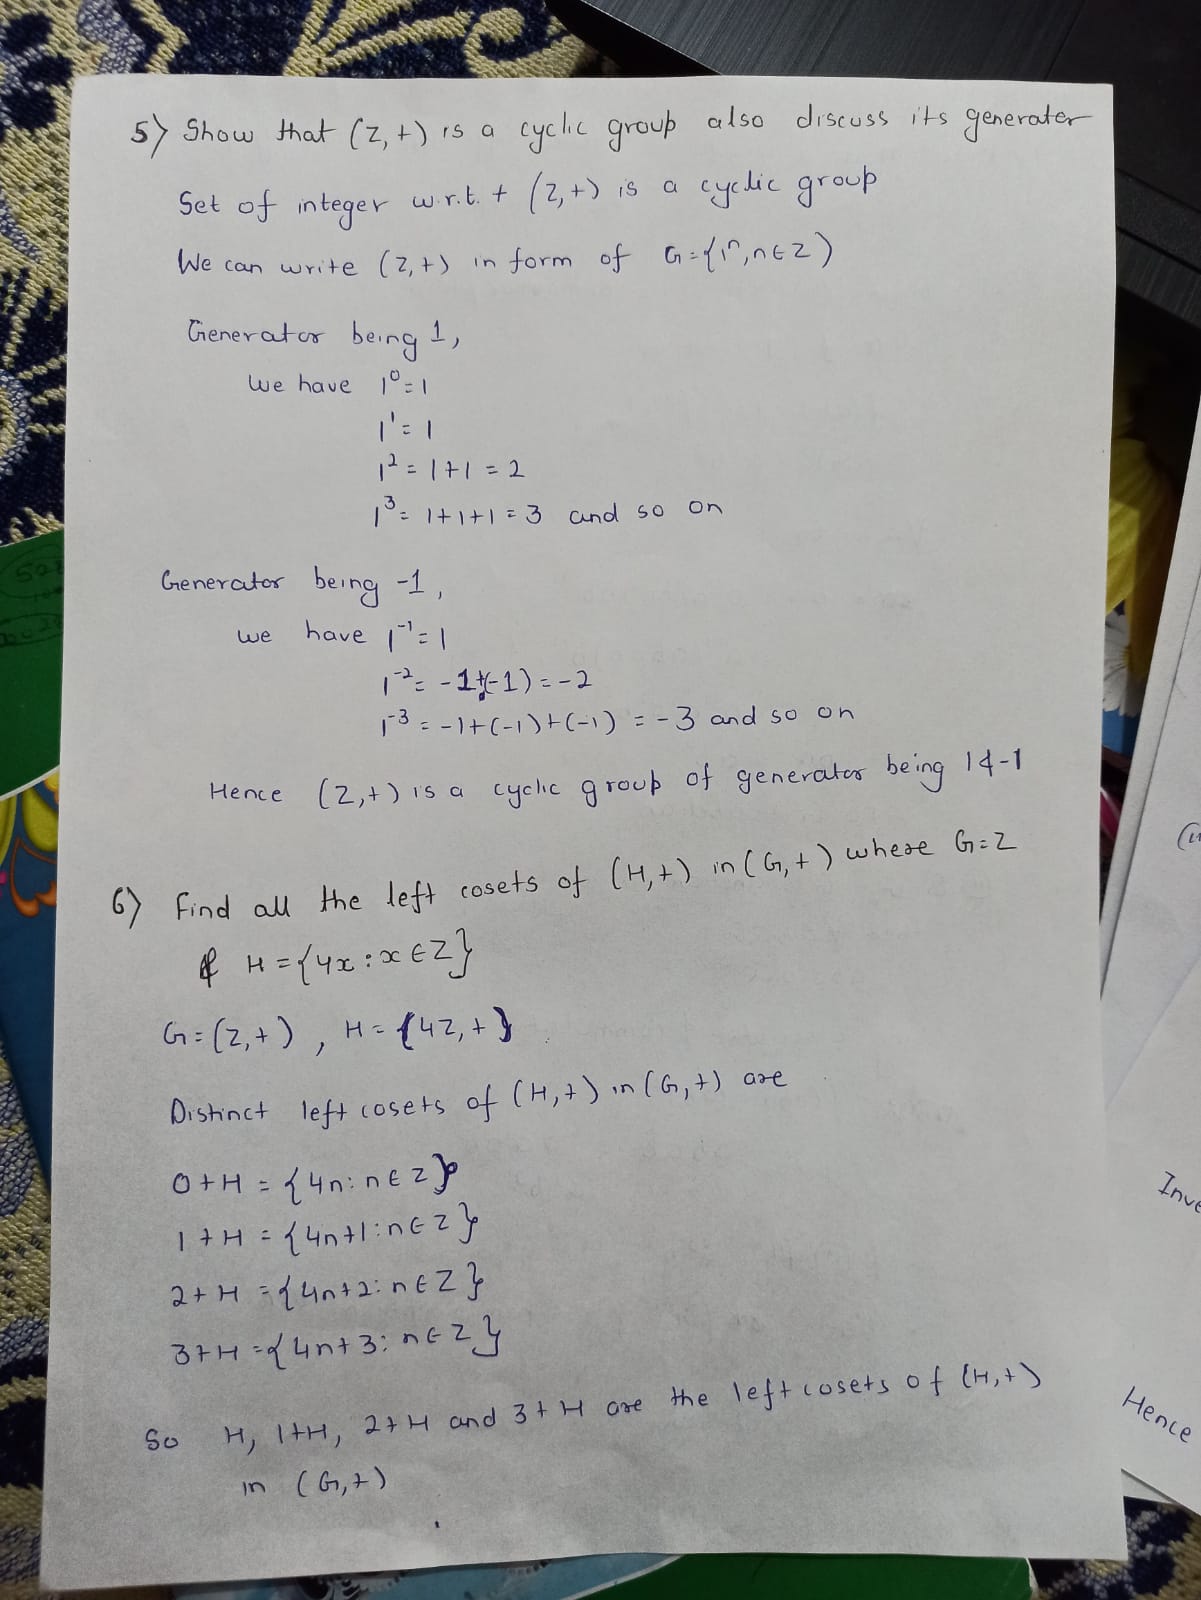 5) Show that (Z, +) is a cyclic group also discuss its generater
Set of integer w.r.t. + (Z,+) is a cyclic group
We can write (Z,+) in form of G={1ⁿ,n∈Z)
Generator being 1,
we have 1⁰=1
1¹=1
1²=1+1=2
1³=1+1+1=3 and so on
Generator being -1,
we have 1⁻¹=1
1⁻²=-1+(-1)=-2
1⁻³=-1+(-1)+(-1)=-3 and so on
Hence (Z,+) is a cyclic group of generator being 1&-1
6) Find all the left cosets of (H,+) in (G,+) where G=Z
& H={4x:x∈Z}
G=(Z,+), H={4Z,+}
Distinct left cosets of (H,+) in (G,+) are
0+H={4n:n∈Z}
1+H={4n+1:n∈Z}
2+H={4n+2:n∈Z}
3+H={4n+3:n∈Z}
So H, 1+H, 2+H and 3+H are the left cosets of (H,+)
in (G,+)
Inve
Hence